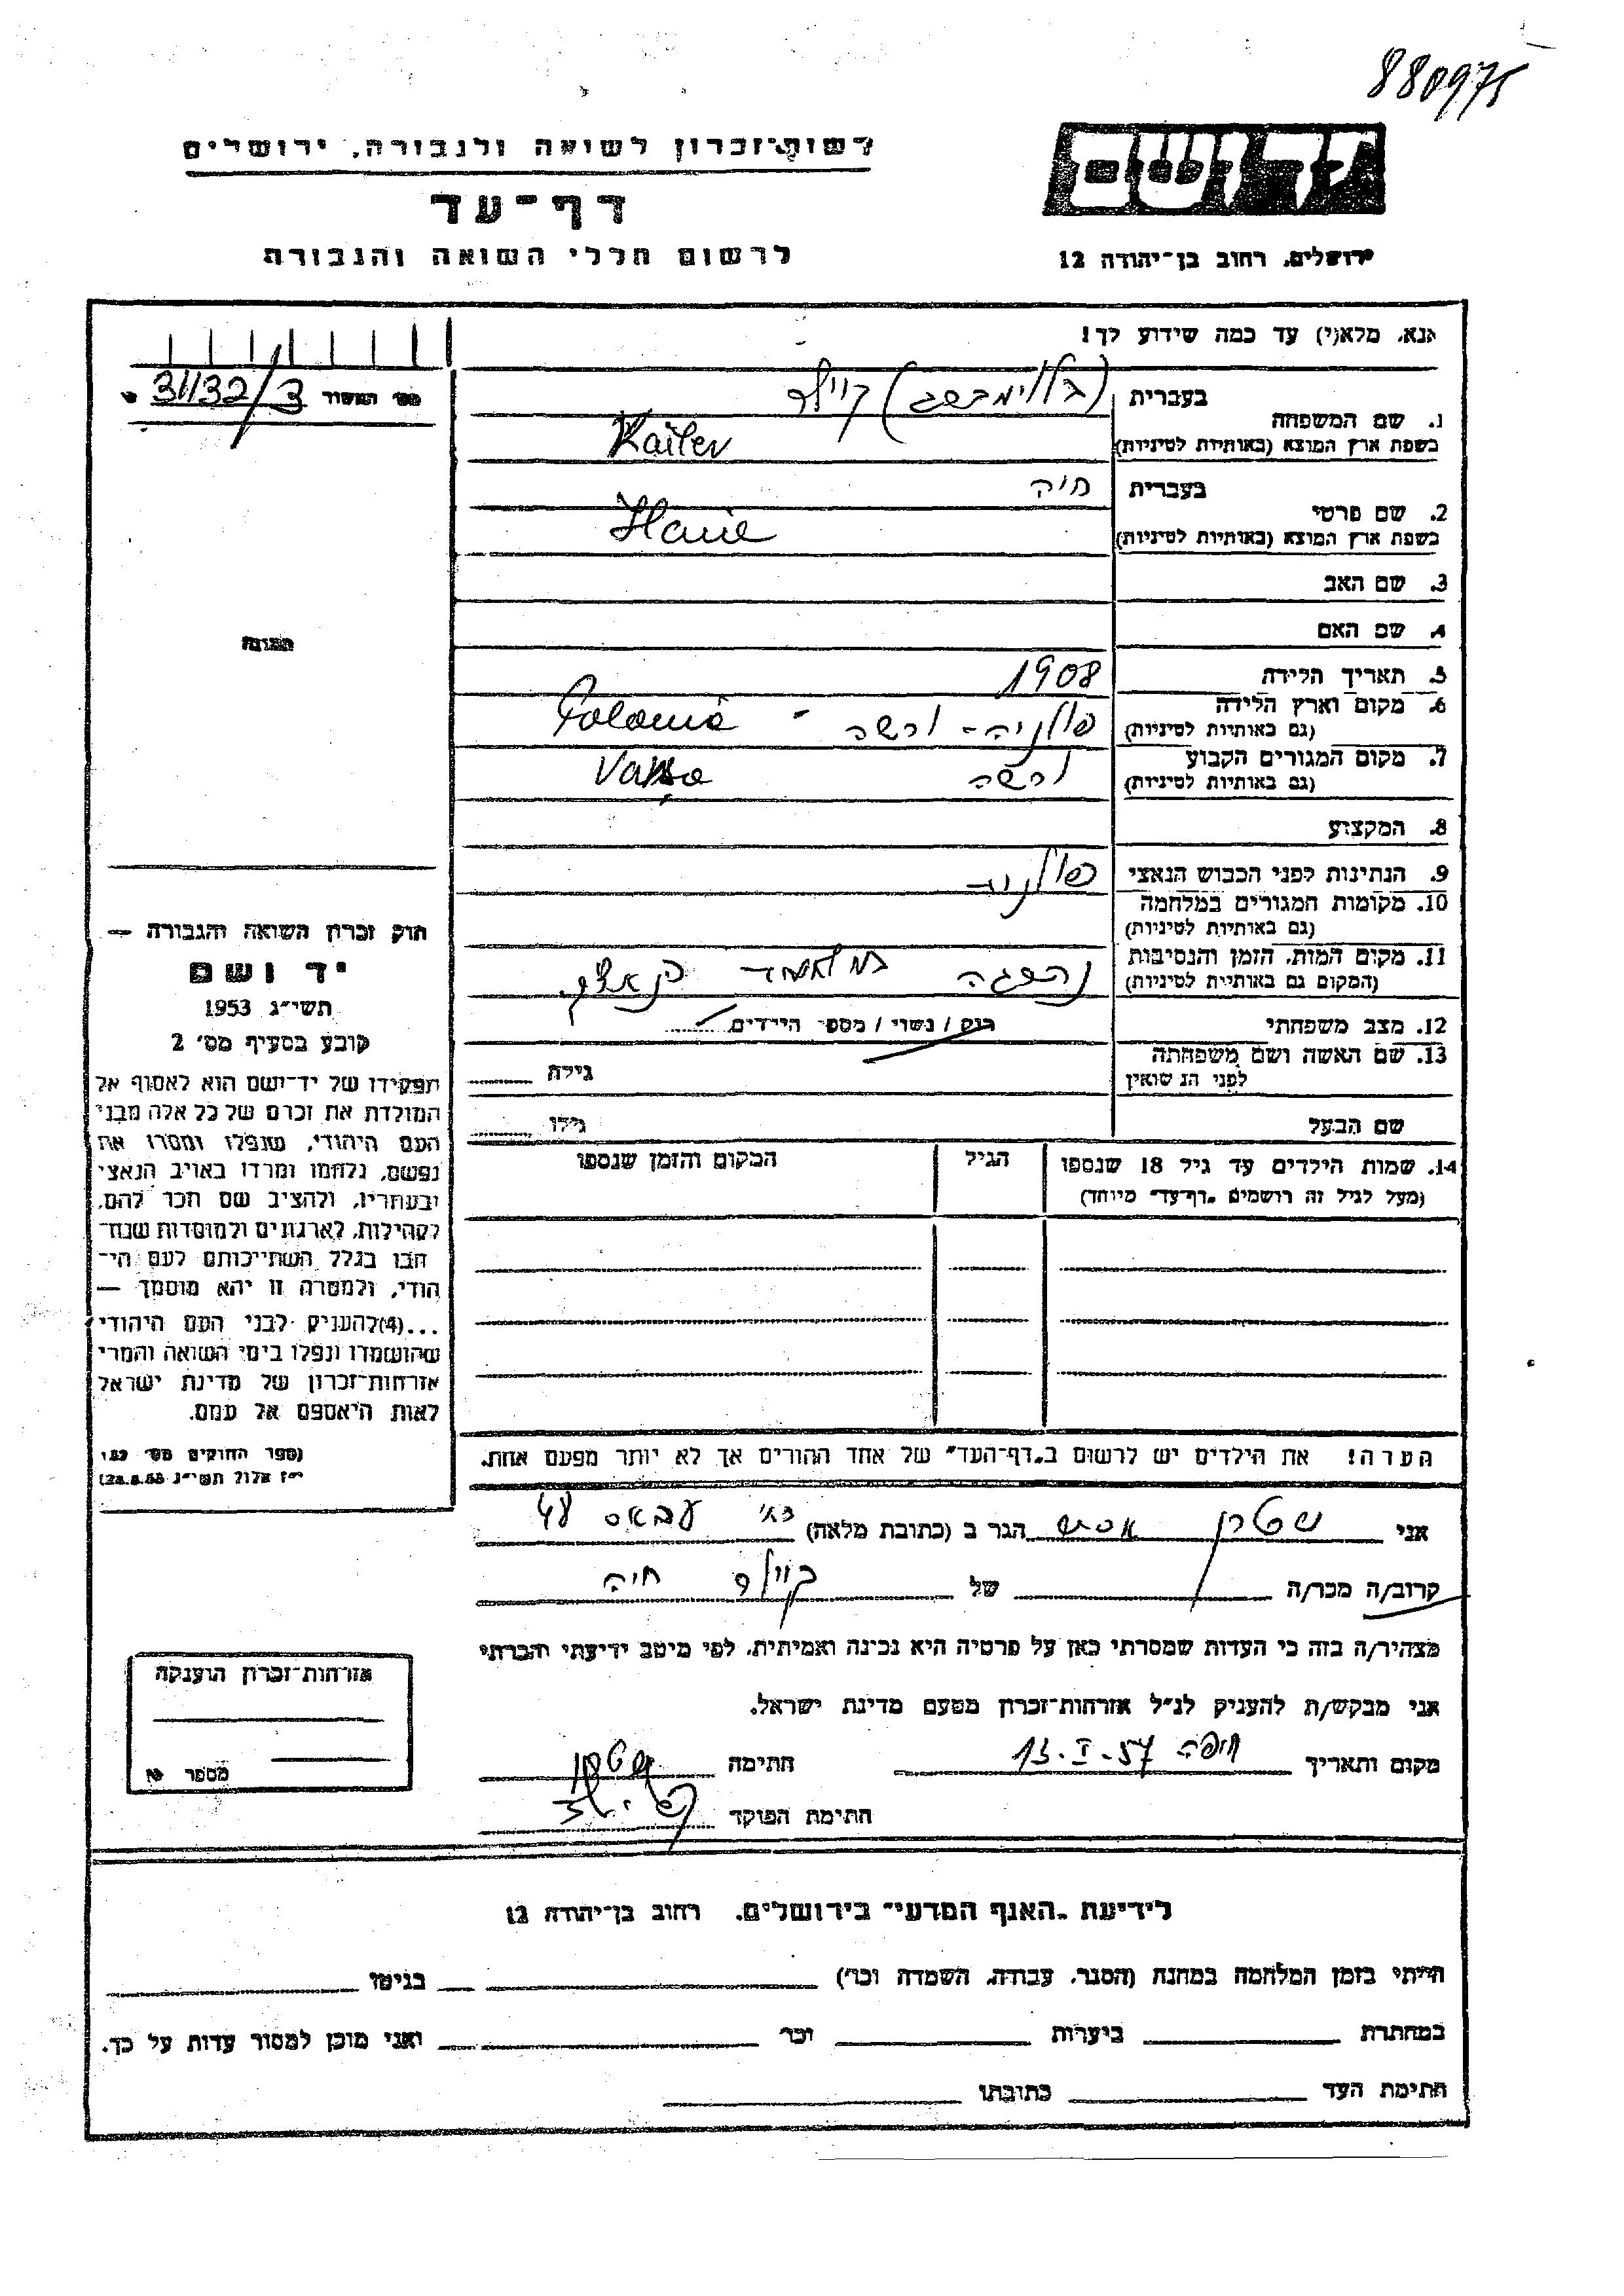 880975
ידושם
ירושלים, רחוב בן־יהודה 12
רשות־זכרון לשואה ולגבורה, ירושלים
דף־עד
לרשום חללי השואה והגבורה
אנא, מלא(י) עד כמה שידוע לך!
מס׳ המשור 31132/3
בעברית
קוילר
1. שם המשפחה
בשפת ארץ המוצא (באותיות לטיניות) Kailer
בעברית חיה
2. שם פרטי
בשפת ארץ המוצא (באותיות לטיניות) Haie
3. שם האב
4. שם האם
5. תאריך הלידה 1908
6. מקום וארץ הלידה
(גם באותיות לטיניות) פולניה - ורשה - Polania
7. מקום המגורים הקבוע
(גם באותיות לטיניות) ורשה
8. המקצוע
9. הנתינות לפני הכבוש הנאצי
10. מקומות המגורים במלחמה
(גם באותיות לטיניות)
11. מקום המות, הזמן והנסיבות
(המקום גם באותיות לטיניות) נהרגה
12. מצב משפחתי רוק / נשוי / מספר הילדים
13. שם האשה ושם משפחתה
לפני הנשואין גילה
שם הבעל גילו
14. שמות הילדים עד גיל 18 שנספו הגיל המקום והזמן שנספו
(מעל לגיל זה רושמים "דף־עד" מיוחד)
הערה! את הילדים יש לרשום ב"דף־העד" של אחד ההורים אך לא יותר מפעם אחת.
התמונה
חוק זכרון השואה והגבורה —
יד ושם
תשי״ג 1953
קובע בסעיף מס׳ 2
תפקידו של יד־ושם הוא לאסוף אל
המולדת את זכרם של כל אלה מבני
העם היהודי, שנפלו ומסרו את
נפשם, נלחמו ומרדו באויב הנאצי
ובעוזריו, ולהציב שם וזכר להם,
לקהילות, לארגונים ולמוסדות שנח־
רבו בגלל השתייכותם לעם הי־
הודי, ולמטרה זו יהא מוסמך —
...(4) להעניק לבני העם היהודי
שהושמדו ונפלו בימי השואה והמרי
אזרחות־זכרון של מדינת ישראל
לאות היאספם אל עמם.
(ספר החוקים מס׳ 132,
י״ז אלול תשי״ג 28.8.53)
אני שטרן אסתר הגר ב (כתובת מלאה) רח׳ עבאס 48
קרוב/ה מכר/ה של קוילר חיה
מצהיר/ה בזה כי העדות שמסרתי כאן על פרטיה היא נכונה ואמיתית, לפי מיטב ידיעתי והכרתי
אני מבקש/ת להעניק לנ״ל אזרחות־זכרון מטעם מדינת ישראל.
מקום ותאריך חיפה 13.I.57 חתימה
חתימת הפוקד
אזרחות־זכרון הוענקה
מספר
לידיעת "האגף המדעי" בירושלים, רחוב בן־יהודה 12
הייתי בזמן המלחמה במחנה (הסגר, עבודה, השמדה וכו׳) בגיטו
במחתרת ביערות וכו׳ ואני מוכן למסור עדות על כך.
חתימת העד כתובתו